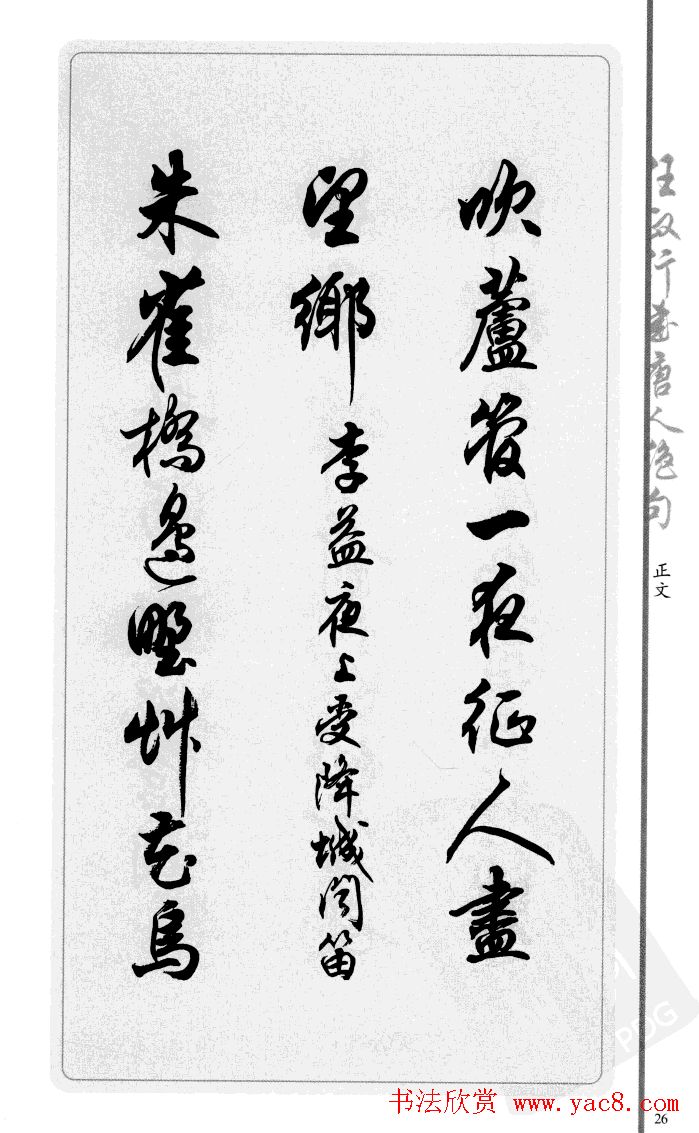 吹蘆管一夜征人盡
望鄉李益夜上受降城聞笛
朱雀橋邊野艸花烏
任政行書唐人絶句
正文
书法欣赏 www.yac8.com
26
PDG